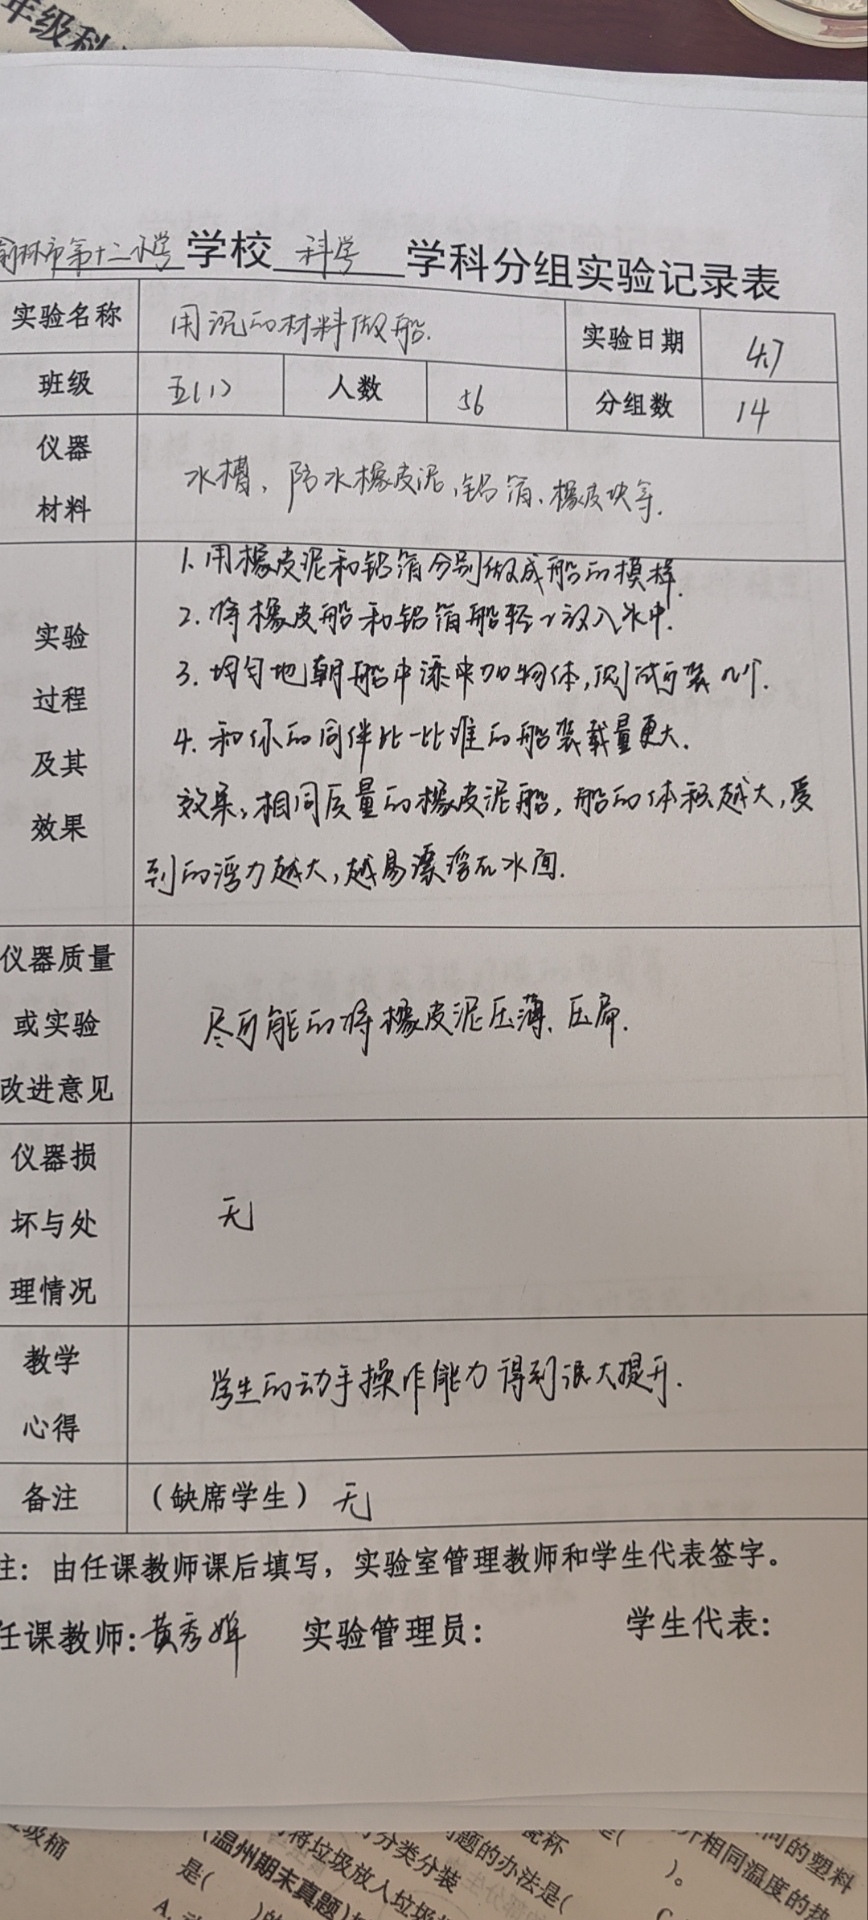 年级科
榆林市第十二小学学校 科学 学科分组实验记录表
实验名称 用沉的材料做船. 实验日期 4.7
班级 五(1) 人数 56 分组数 14
仪器材料 水槽、防水橡皮泥,铝箔、橡皮块等.
实验过程及其效果
1.用橡皮泥和铝箔分别做成船的模样.
2.将橡皮船和铝箔船轻轻放入水中.
3.均匀地朝船中添加物体,测试可装几个.
4.和你的同伴比一比谁的船装载量更大.
效果:相同质量的橡皮泥船,船的体积越大,受
到的浮力越大,越易漂浮在水面.
仪器质量或实验改进意见 尽可能的将橡皮泥压薄、压扁.
仪器损坏与处理情况 无
教学心得 学生的动手操作能力得到很大提升.
备注 (缺席学生) 无
注:由任课教师课后填写,实验室管理教师和学生代表签字。
任课教师:黄秀 实验管理员: 学生代表:
垃圾桶
将垃圾放入垃圾
分类分装
题的办法是(
瓷杯
是(
)。
同的塑料
相同温度的热
(温州期末真题)
是( )的
A.
C